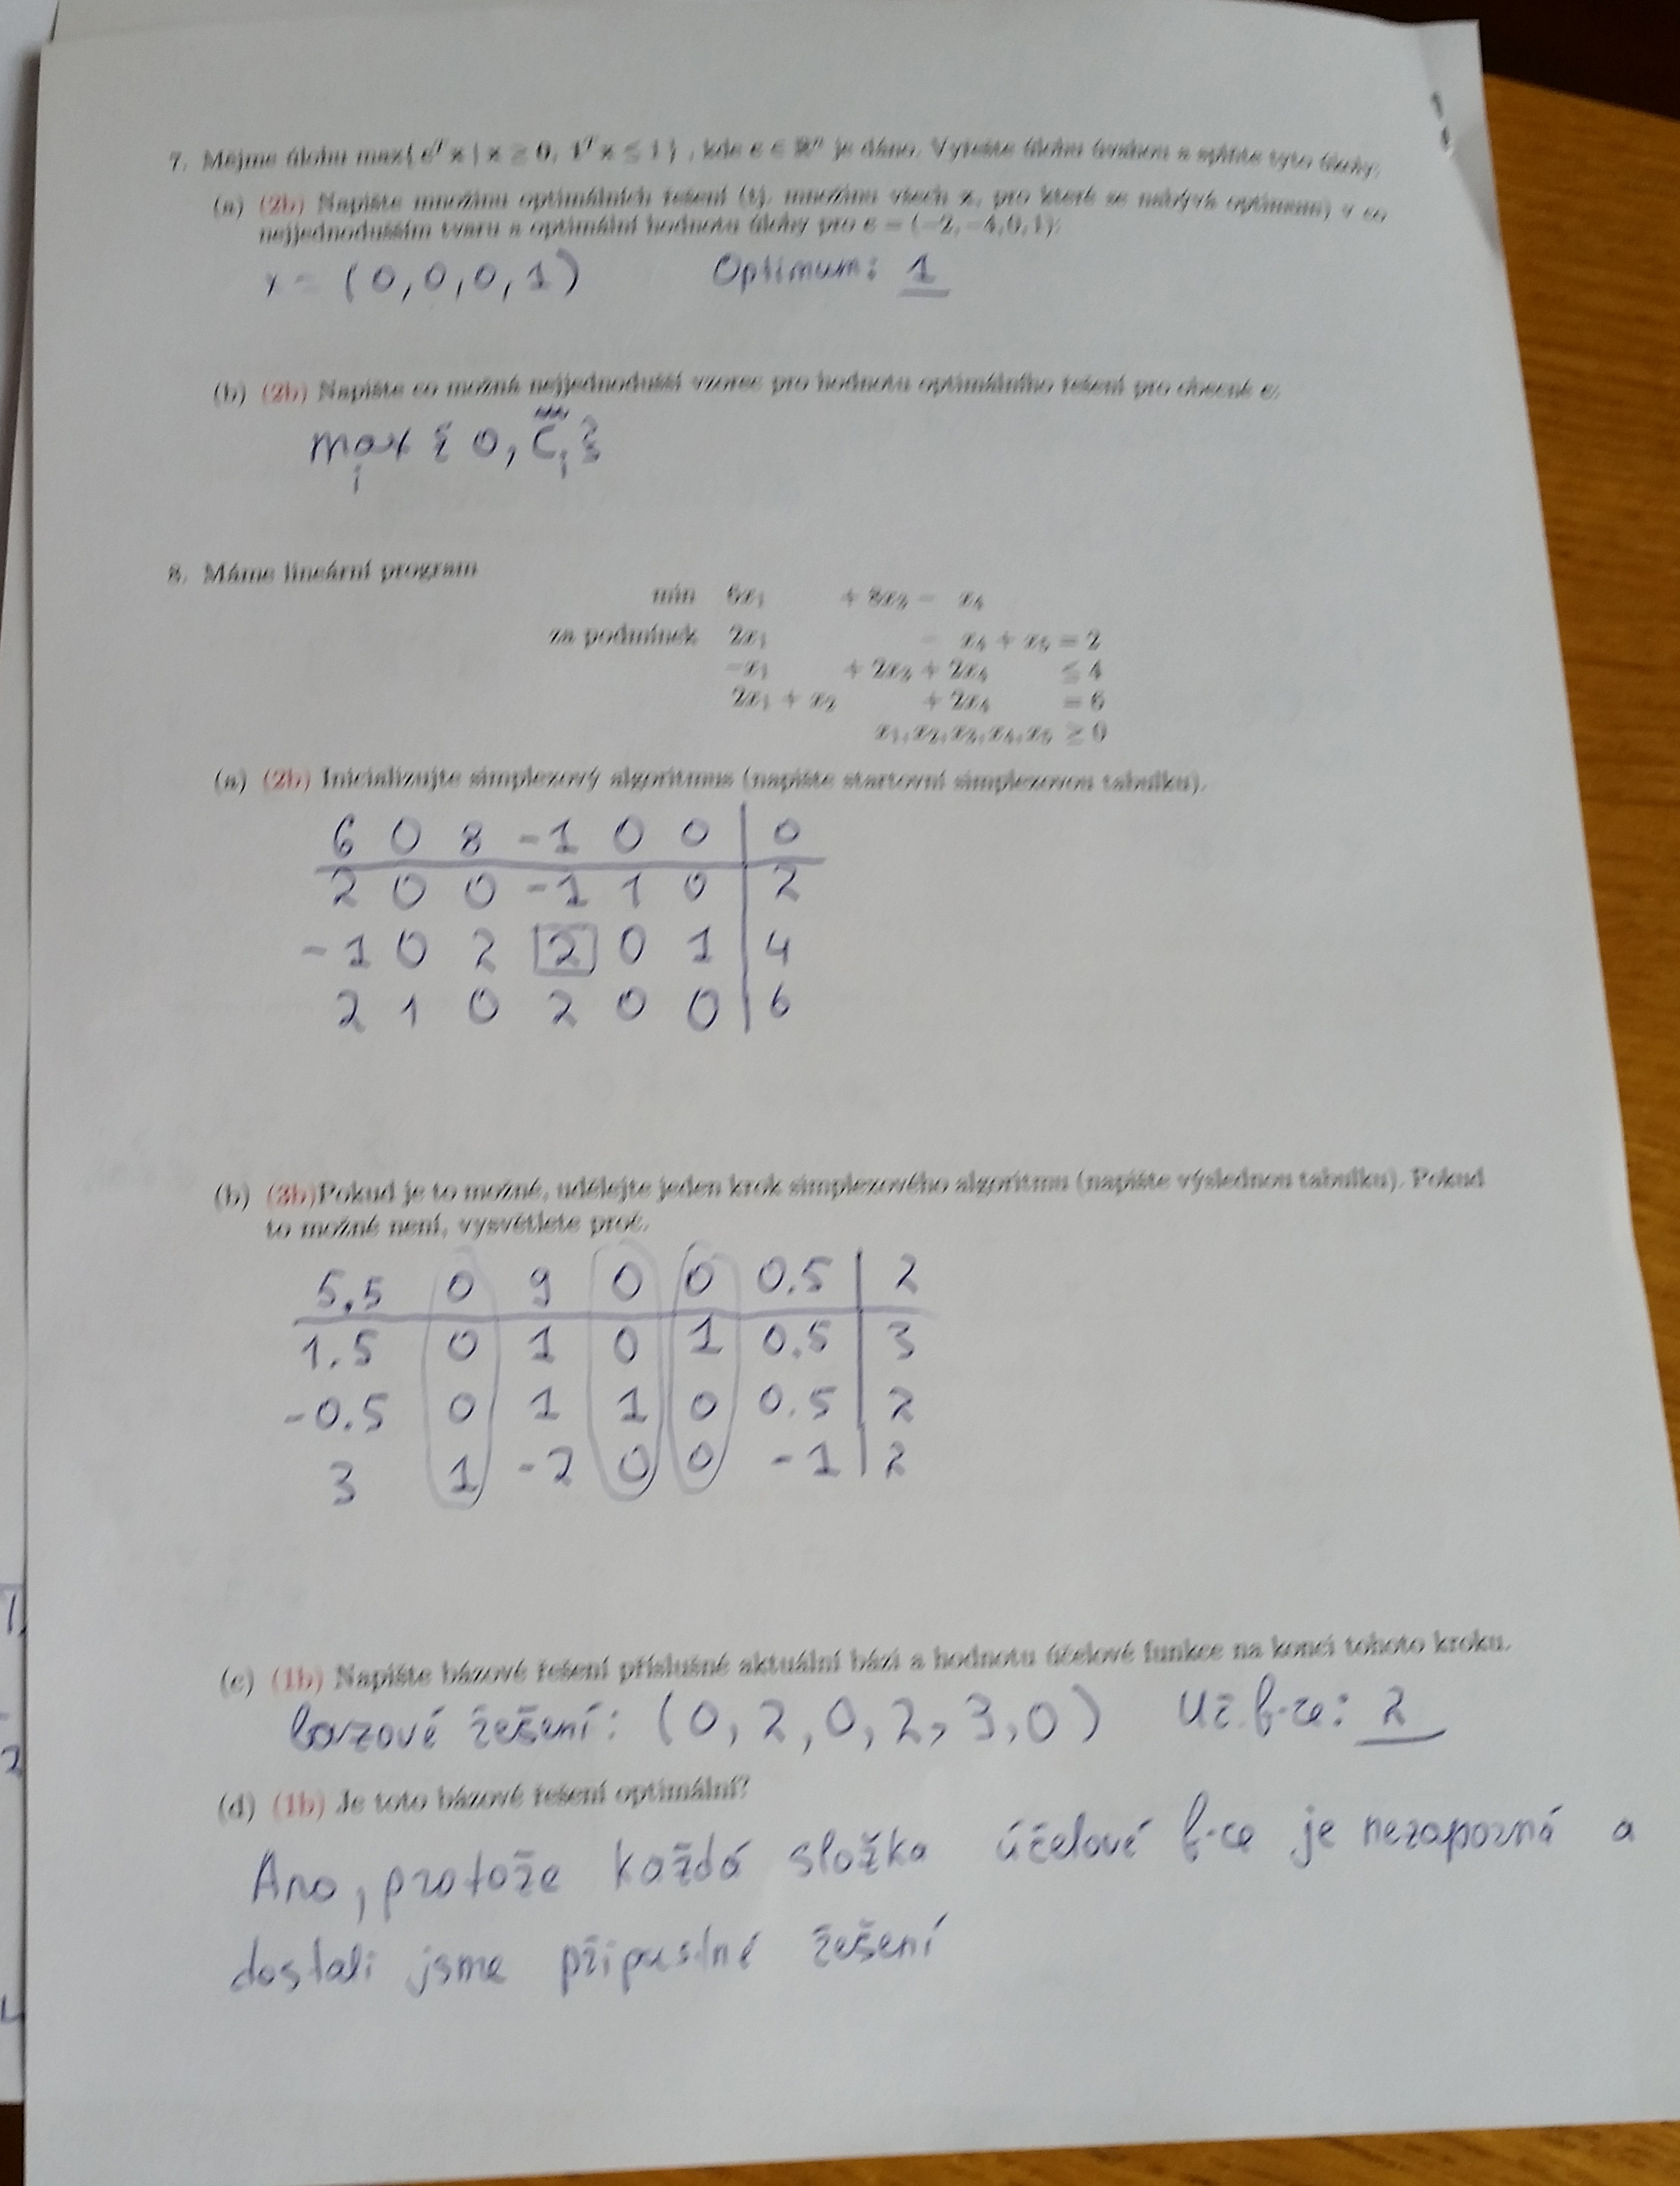 7. Mějme úlohu max{ cᵀx | x ≥ 0, 1ᵀx ≤ 1 }, kde c ∈ ℝⁿ je dáno. Vyřešte úlohu úvahou a splňte tyto úkoly:
(a) (2b) Napište množinu optimálních řešení (tj. množinu všech x, pro které se nabývá optimum) v co
nejjednodušším tvaru a optimální hodnotu úlohy pro c = (−2,−4,0,1):
x = (0,0,0,1) Optimum: 1
(b) (2b) Napište co možná nejjednodušší vzorec pro hodnotu optimálního řešení pro obecné c:
max { 0, c_i }
i
8. Máme lineární program
min 6x₁ + 8x₃ − x₄
za podmínek 2x₁ − x₄ + x₅ = 2
−x₁ + 2x₃ + 2x₄ ≤ 4
2x₁ + x₂ + 2x₄ = 6
x₁,x₂,x₃,x₄,x₅ ≥ 0
(a) (2b) Inicializujte simplexový algoritmus (napište startovní simplexovou tabulku).
6 0 8 -1 0 0 | 0
2 0 0 -1 1 0 | 2
-1 0 2 2 0 1 | 4
2 1 0 2 0 0 | 6
(b) (3b)Pokud je to možné, udělejte jeden krok simplexového algoritmu (napište výslednou tabulku). Pokud
to možné není, vysvětlete proč.
5,5 0 9 0 0 0.5 | 2
1.5 0 1 0 1 0.5 | 3
-0.5 0 1 1 0 0.5 | 2
3 1 -2 0 0 -1 | 2
(c) (1b) Napište bázové řešení příslušné aktuální bázi a hodnotu účelové funkce na konci tohoto kroku.
bázové řešení: (0,2,0,2,3,0) Uč. f-ce: 2
(d) (1b) Je toto bázové řešení optimální?
Ano, protože každá složka účelové f-ce je nezáporná a
dostali jsme přípustné řešení